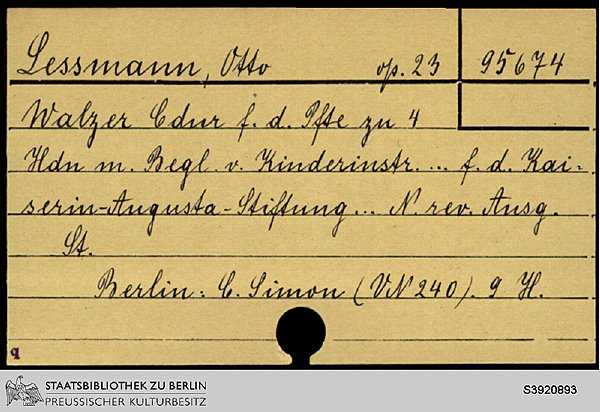 Lessmann, Otto op. 23 95674
Walzer Cdur f. d. Pfte zu 4
Hdn m. Begl. v. Kinderinstr. ... f. d. Kai-
serin-Augusta-Stiftung ... N. rev. Ausg.
St.
Berlin: C. Simon (VN 240). 9 H.
q
STAATSBIBLIOTHEK ZU BERLIN
PREUSSISCHER KULTURBESITZ
S3920893